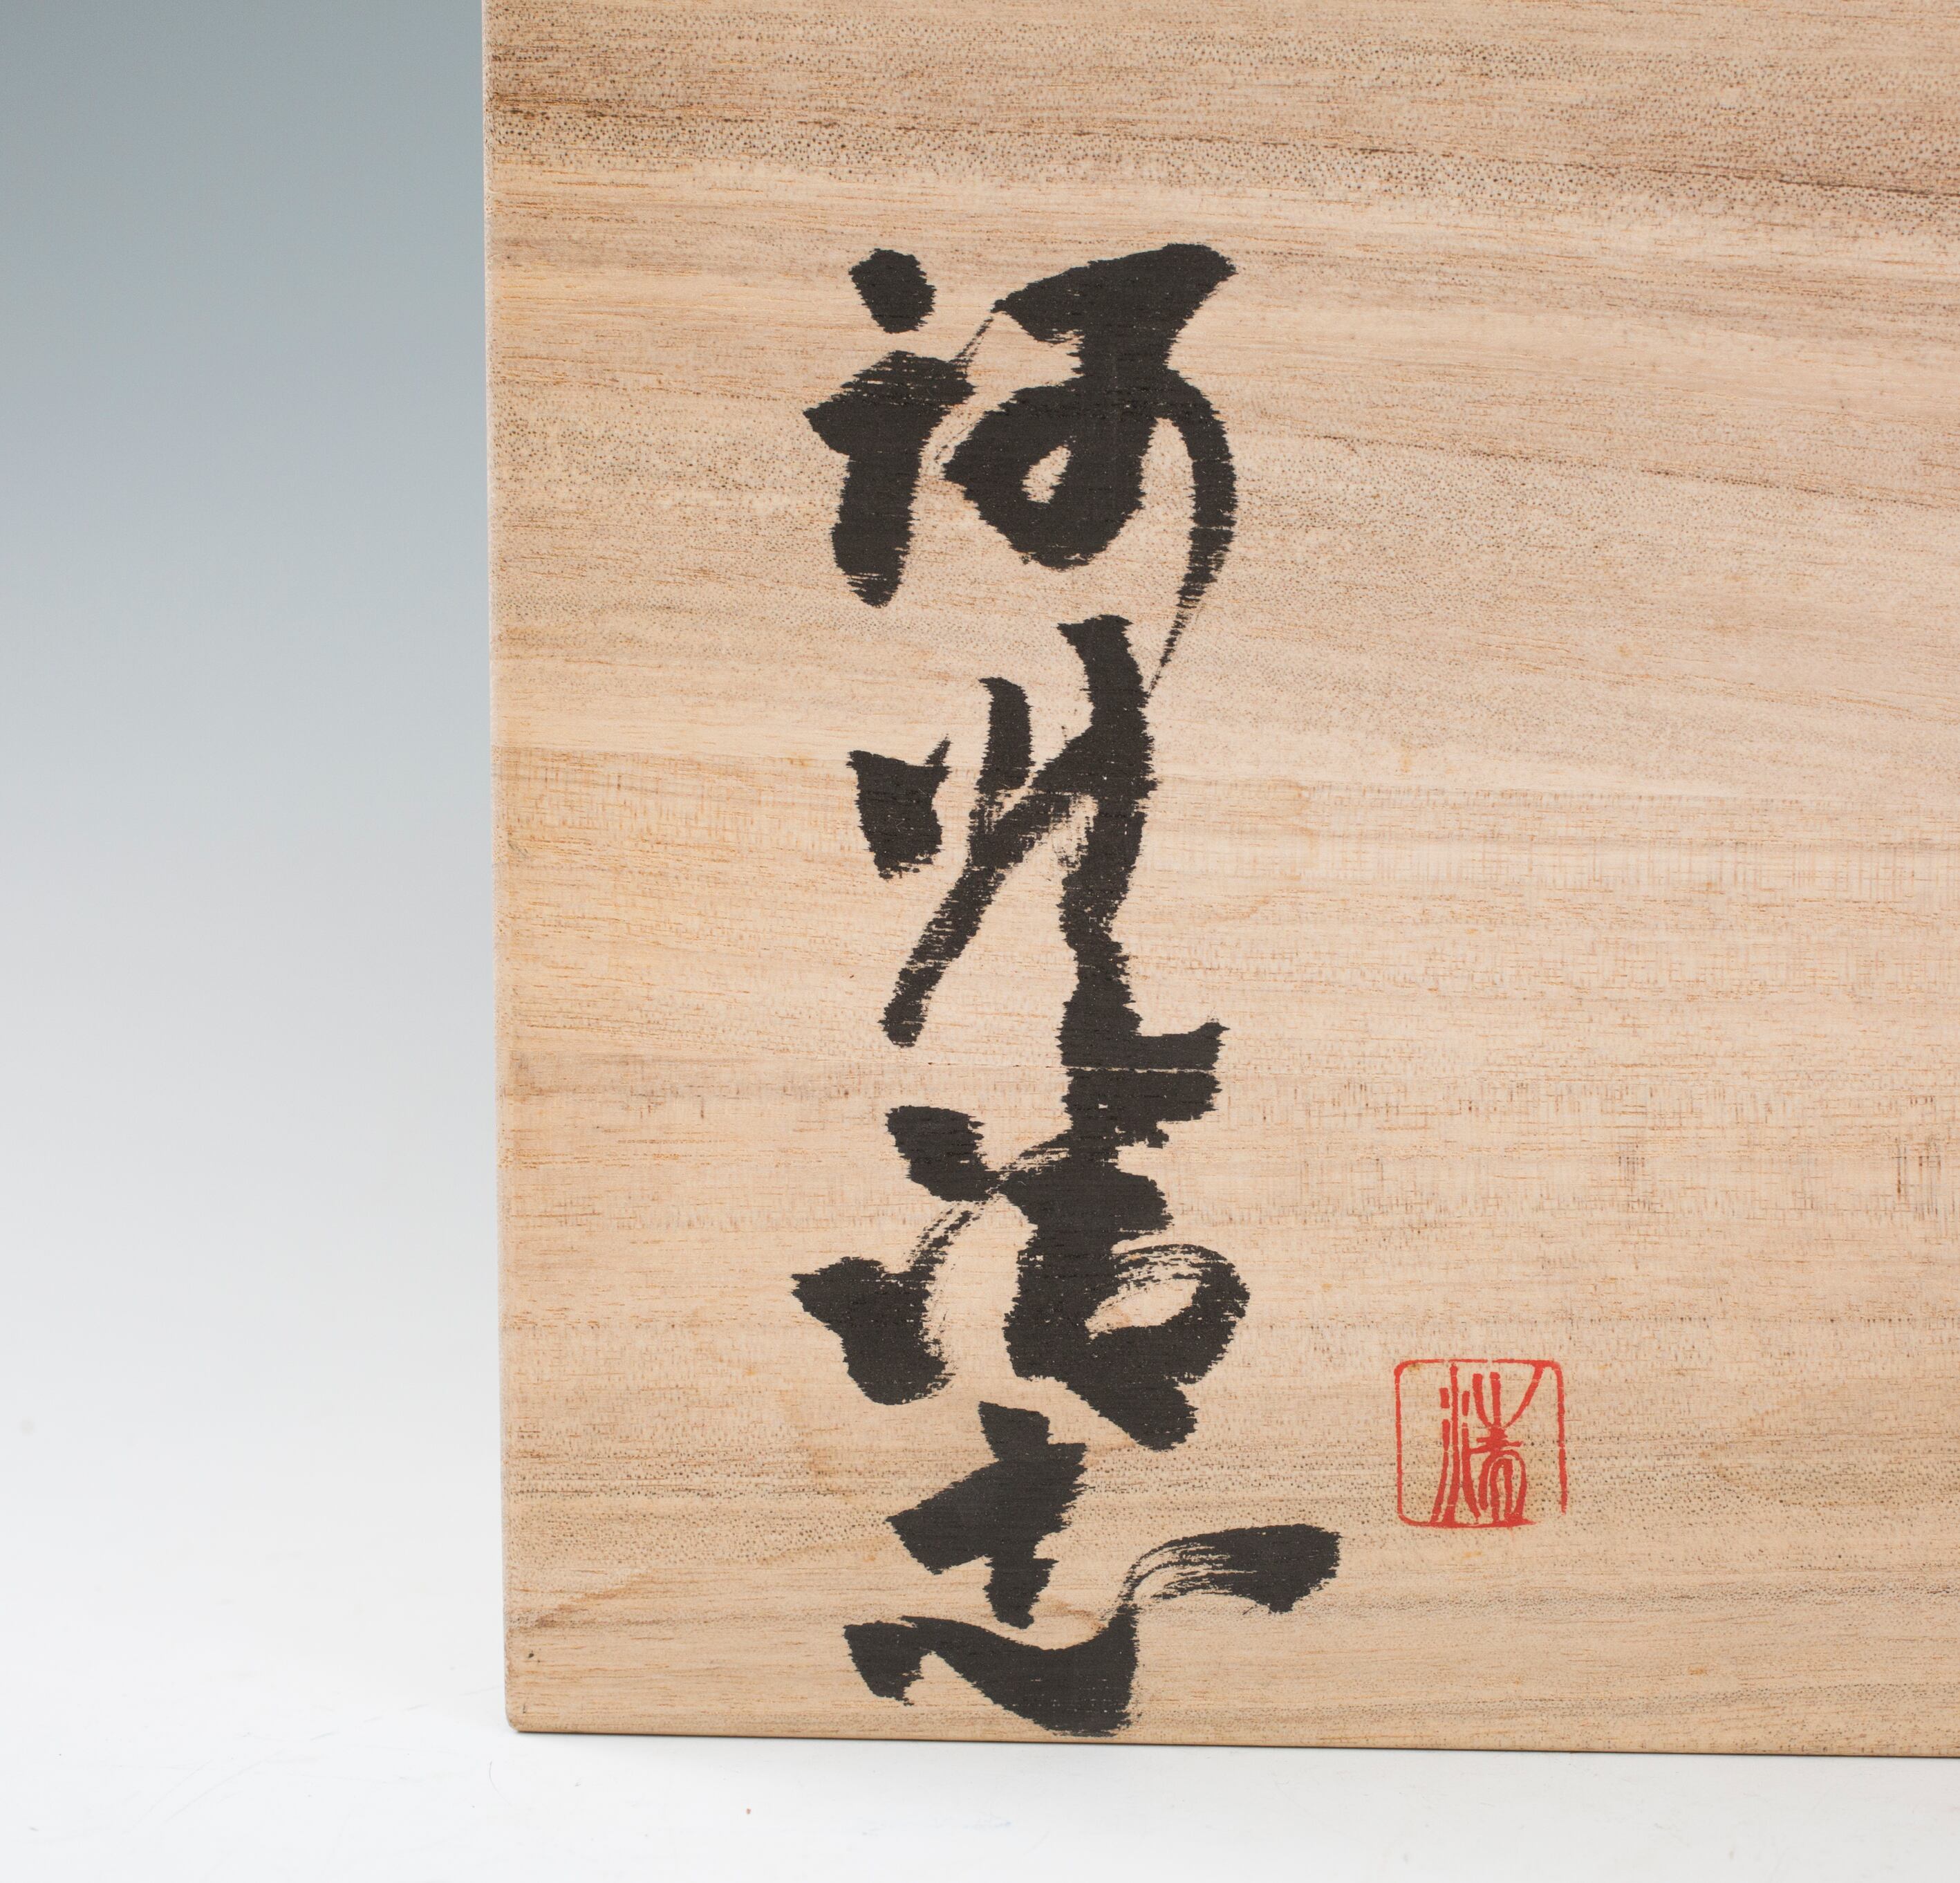 河州清志
清